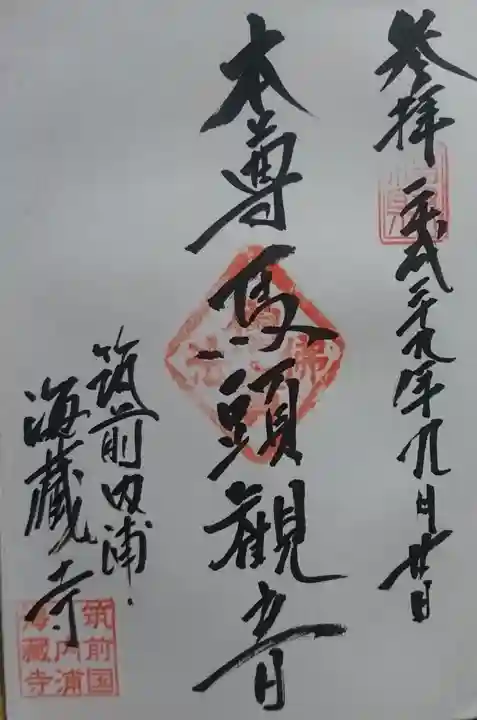 参拝
平成二十九年九月廿日
本尊馬頭観音
筑前内浦
海蔵寺
筑前国
内浦
海蔵寺